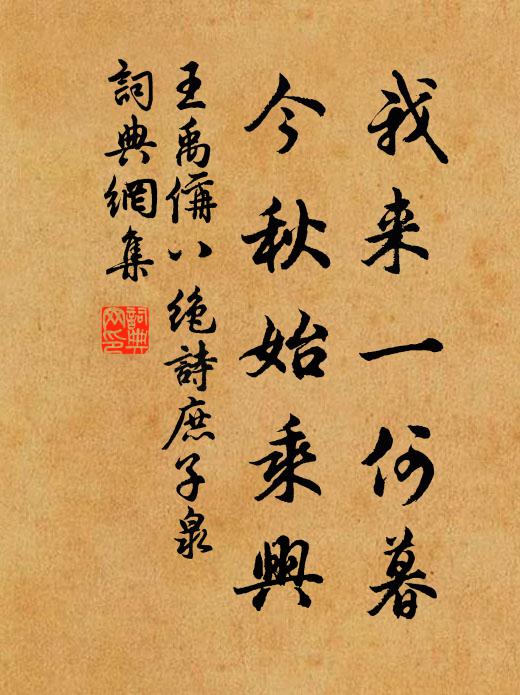 我来一何暮
今秋始乘興
王禹偁八絶詩庶子泉
詞典網集
詞典
网印